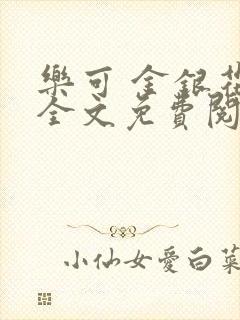 樂可 金銀花
全文免費閱
小仙女愛白菜